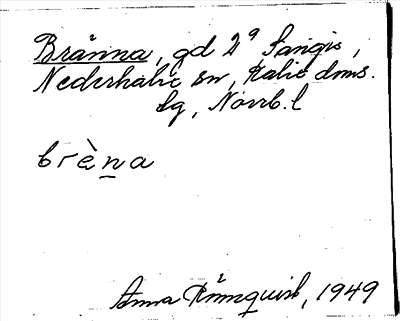 Bränna, gd 2⁹ Sangis,
Nederkalix sn, Kalix dms.
lg, Norrb. l
brèṉa
Anna Rönnquist, 1949